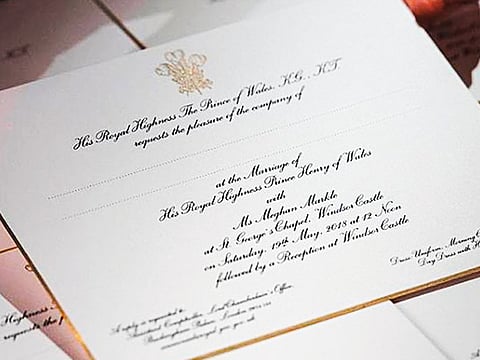 His Royal Highness The Prince of Wales, K.G., K.T.
requests the pleasure of the company of
at the Marriage of
His Royal Highness Prince Henry of Wales
with
Ms Meghan Markle
at St George's Chapel, Windsor Castle
on Saturday, 19th May, 2018 at 12 Noon
followed by a Reception at Windsor Castle
A reply is requested to:
Lord Chamberlain's Office,
Buckingham Palace, London
Dress: Uniform, Morning C
Day Dress with H
His Royal Highness
requests the p